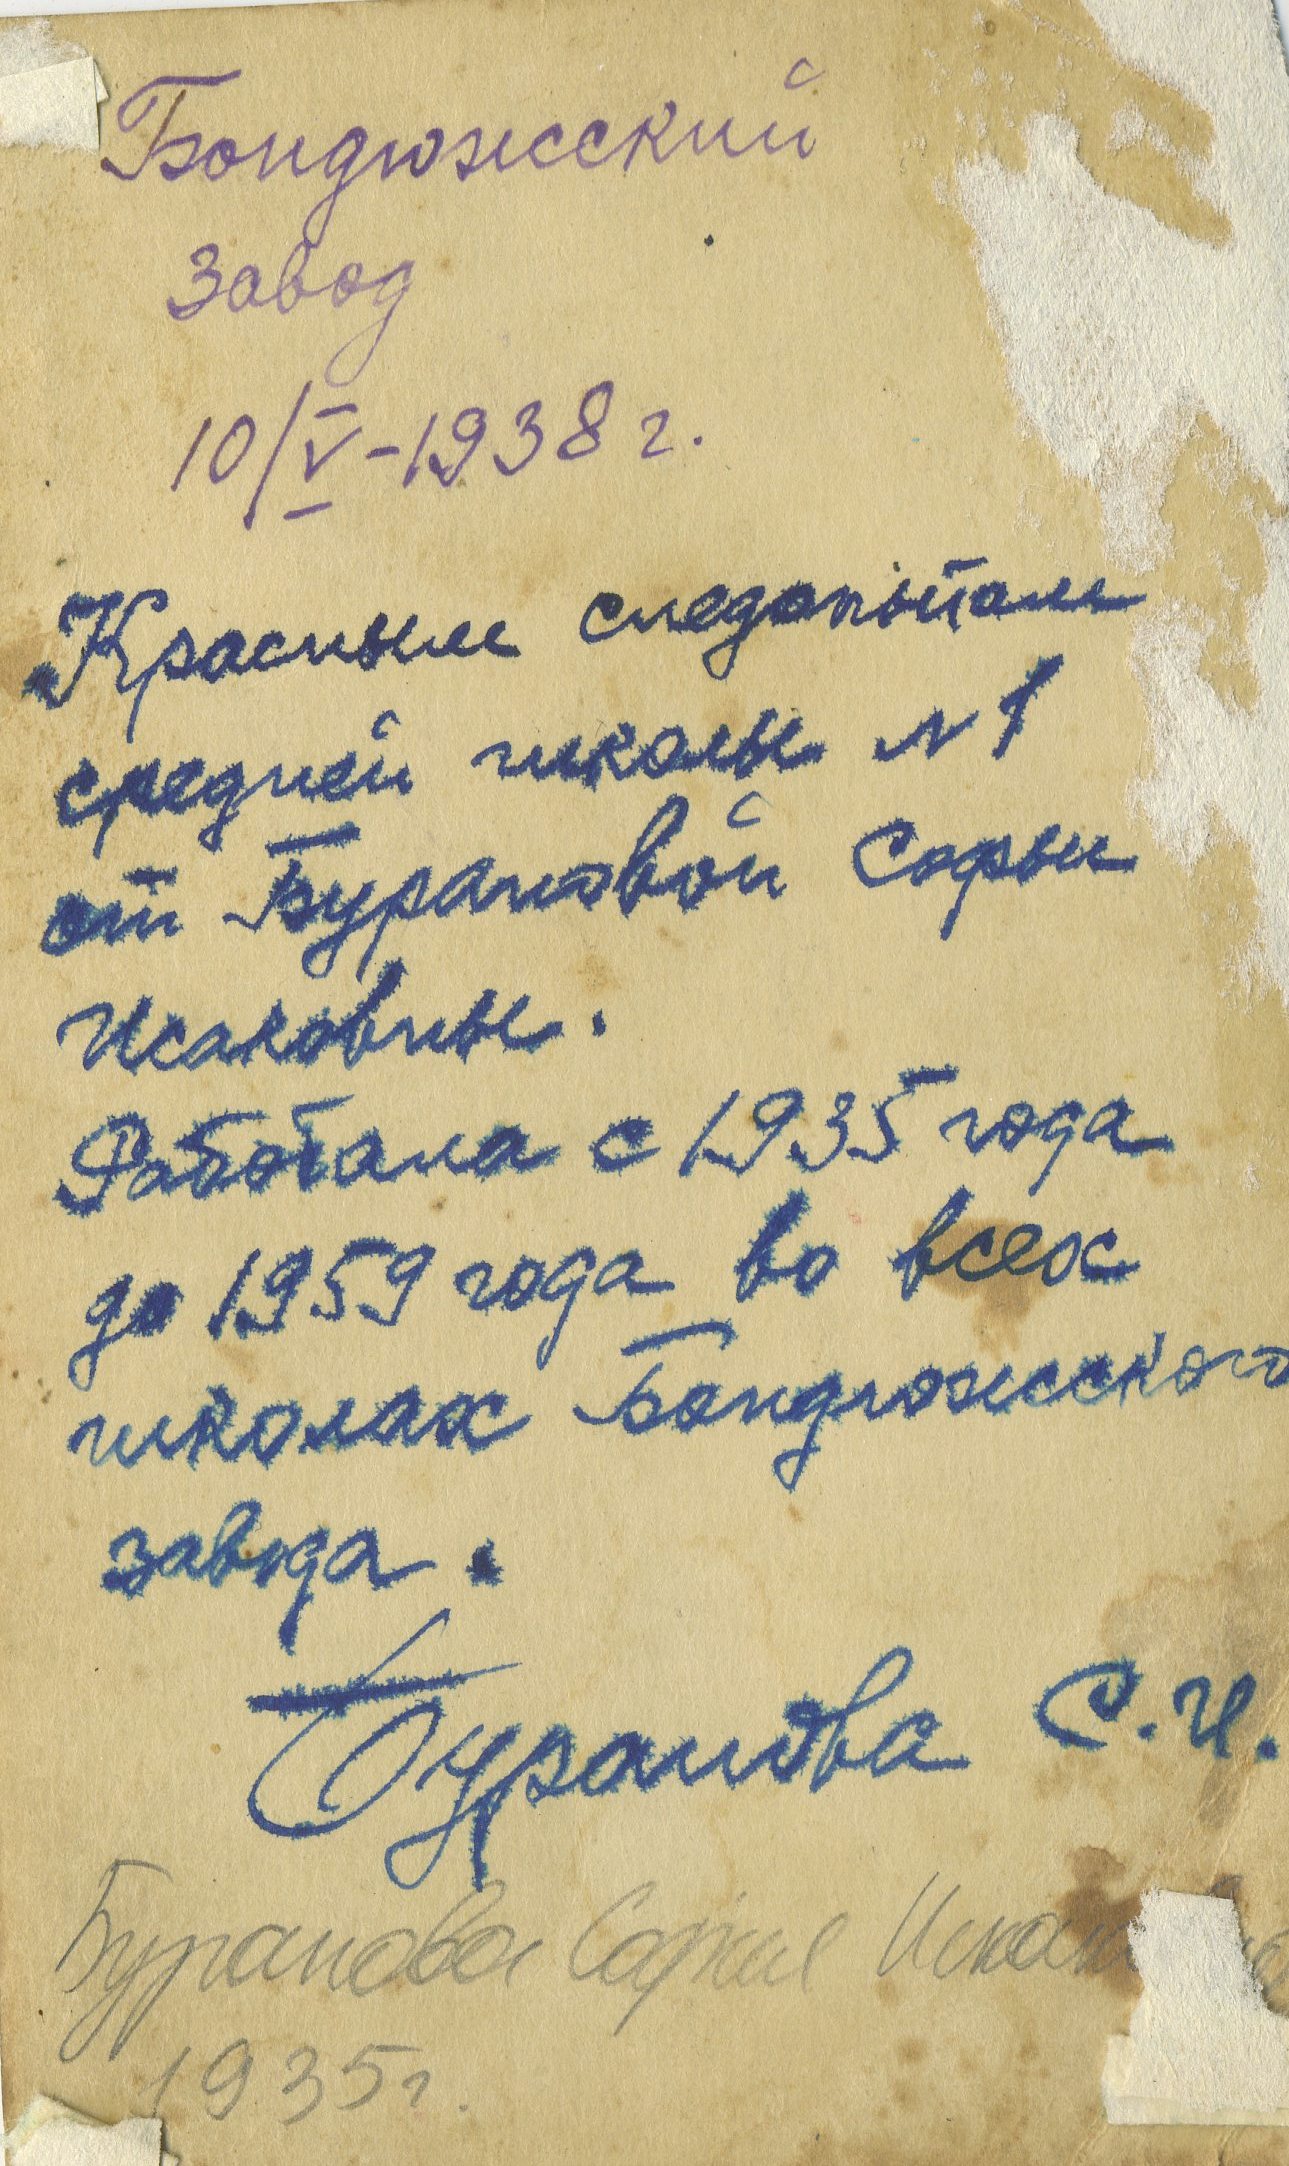 Бондюжский
завод
10/V-1938 г.
Красным следопытам
средней школы N 1
от Бурановой Софьи
Исаковны.
Работала с 1935 года
до 1959 года во всех
школах Бондюжского
завода.
Буранова С. И.
Буранова София
1935 г.